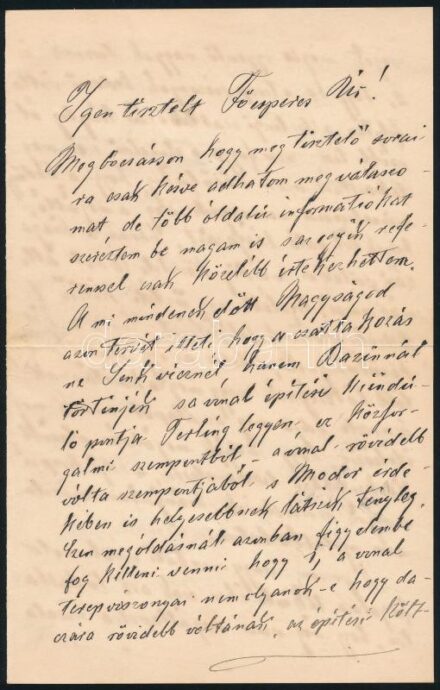 Igen tisztelt Főesperes Úr!
Megbocsásson hogy megtisztelő sorai
ra csak késve adhatom meg válaszo
mat de több oldalú informatiókat
szereztem be magam is s az egyik refe
renssel csak később értekezhettem.
A mi mindenek előtt Nagyságod
azon tervét illeti, hogy a csatlakozás
ne hanem Bazinnál
történjék s a vonal építési kiindu
ló pontja Terling legyen, ez közfor
galmi szempontból - a vonal rövidebb
volta szempontjából s Modor érde
kében is helyesebbnek látszik tényleg.
Ezen megoldásnál azonban figyelembe
fog kelleni venni hogy a vonal
terepviszonyai nem olyanok-e hogy da
czára rövidebb voltának az építési költ-